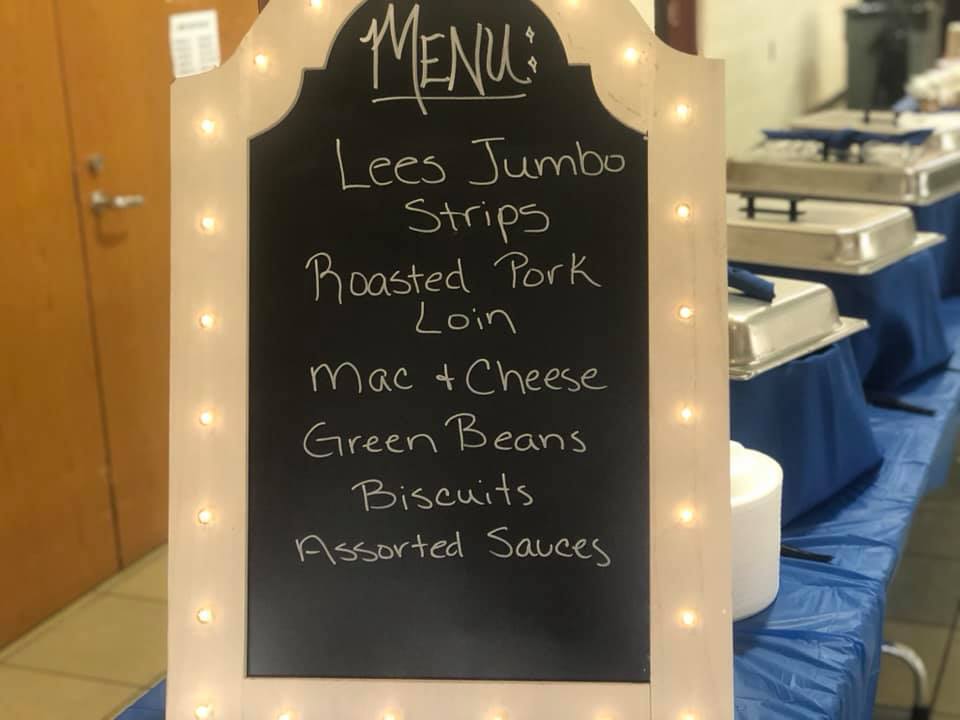 MENU:
Lees Jumbo
Strips
Roasted Pork
Loin
Mac + Cheese
Green Beans
Biscuits
Assorted Sauces